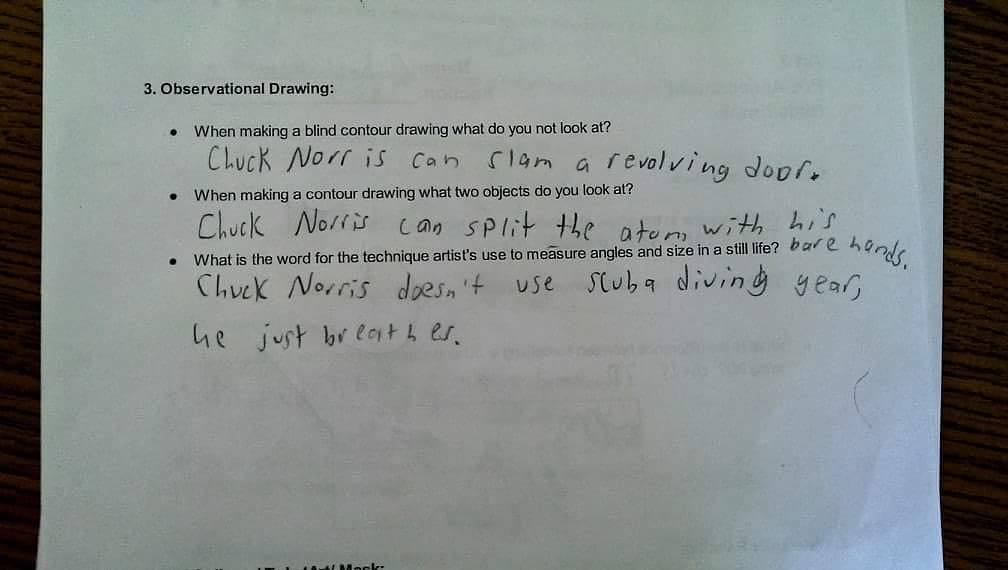 3. Observational Drawing:
• When making a blind contour drawing what do you not look at?
Chuck Norris can slam a revolving door.
• When making a contour drawing what two objects do you look at?
Chuck Norris can split the atom with his
bare hands.
• What is the word for the technique artist's use to measure angles and size in a still life?
Chuck Norris doesn't use scuba diving gear,
he just breathes.